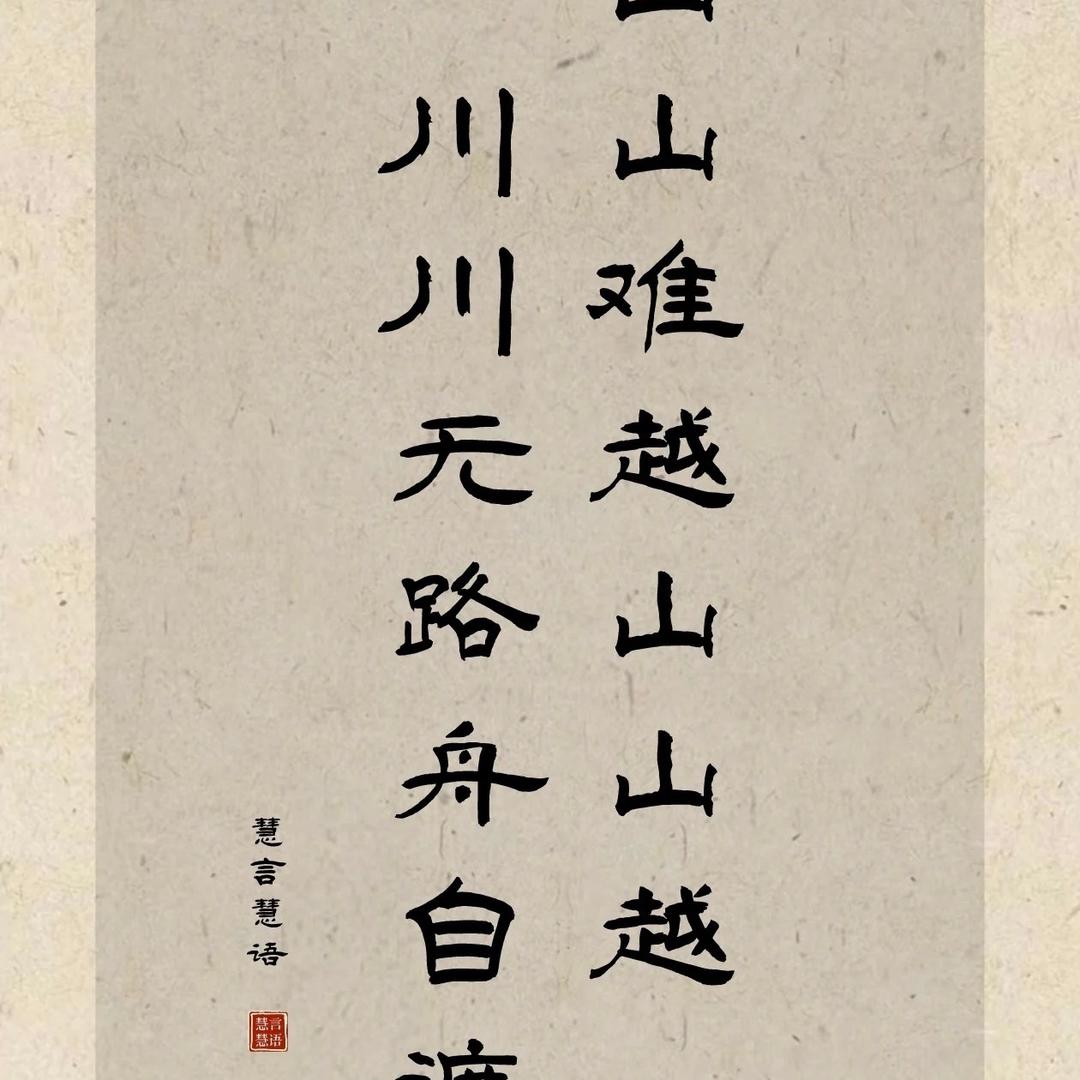 山山难越山山越
川川无路舟自渡
慧言慧语
慧言
慧语